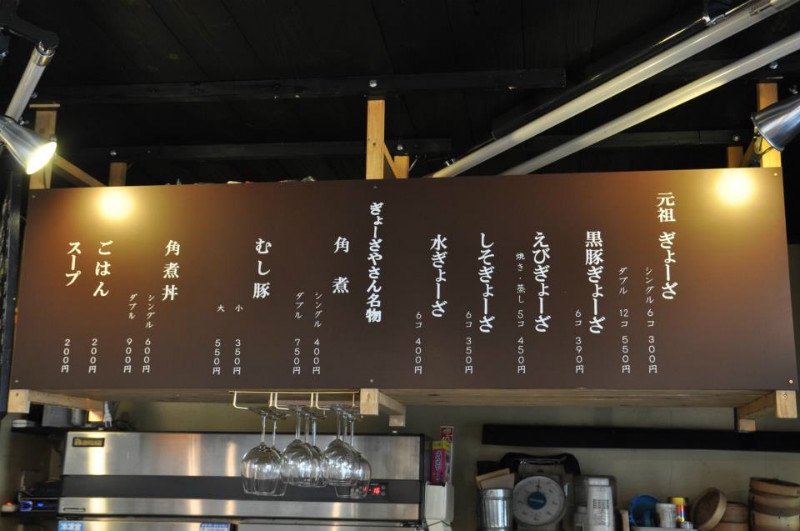 元祖 ぎょーざ
シングル 6コ 300円
ダブル 12コ 550円
黒豚ぎょーざ
6コ 390円
えびぎょーざ
焼き・蒸し 5コ 450円
しそぎょーざ
6コ 350円
水ぎょーざ
6コ 400円
ぎょーざやさん名物
角煮
シングル 400円
ダブル 750円
むし豚
小 350円
大 550円
角煮丼
シングル 600円
ダブル 900円
ごはん
200円
スープ
200円